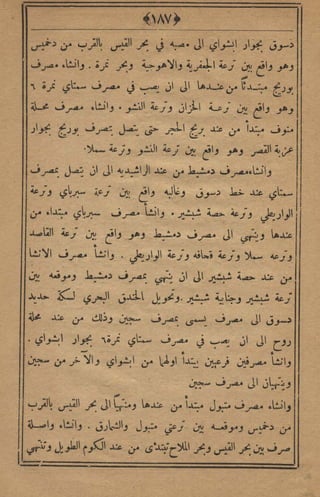 ﴿١٨٧﴾
دسوق بجوار ابشواي الى مصبه في بحر القيس بالقرب من دخميس
وهو واقع بين ترعة الجعفرية والاهوجية وبحر نمرة . وانشاء مصرف
بوريج مبتدئاً من عندها الى ان يصب في مصرف سمتاي نمرة ٦
وهو واقع بين ترعة الخزان وترعة النشو . وانشاء مصرف محلة
منوف مبتدأ من عند بريج الحجر حتى يتصل بمصرف بوريج بجوار
عزبة القصر وهو واقع بين ترعة النشو وترعة سملا .
وانشاء مصرف دمشيط من عند الراشيديه الى ان يتصل بمصرف
سمتاي عند خط دسوق وغالبه واقع بين ترعة سبرباي وترعة
الواريطي وترعة حصة شبشير . وانشأ مصرف سبرباي مبتداء من
عندها وينتهي الى مصرف دمشيط وهو واقع بين ترعة القاصد
وترعه سملا وترعة قحافه وترعة الواريطي . وانشأ مصرف الانشا
من عند حصة شبشير الى ان ينتهي بمصرف دمشيط وموقعه بين
ترعة شبشير وجنابية شبشير . وتحويل الخندق البحري لسكة حديد
دسوق الى مصرف يسمى بمصرف سجين وذلك من عند محلة
روح الى ان يصب في مصرف سمتاي نمرة ٦ بجوار ابشواي .
وانشأ مصرفين فرعيين يبتدأ اولهما من ابشواي والآخر من سجين
وينتهيان الى مصرف سجين
وانشاء مصرف متبول مبتدأ من عندها ومنتهياً الى بحر القيس بالقرب
من دخميس وموقعه بين ترعتي متبول والشهارق . وانشاء واصلة
صرف بين بحر القيس وبحر الملاح تبتدئ من عند الكوم الطويل وتنتهي